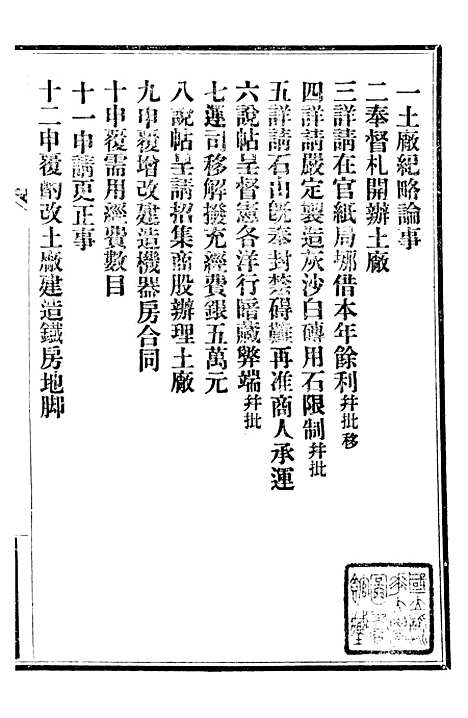 一土廠紀略論事
二奉督札開辦土廠
三詳請在官紙局挪借本年餘利并批移
四詳請嚴定製造灰沙白磚用石限制并批
五詳請石山旣奉封禁碍難再准商人承運
六說帖呈督憲各洋行暗藏弊端并批
七運司移解撥充經費銀五萬元
八說帖呈請招集商股辦理土廠
九申覆增改建造機器房合同
十申覆需用經費數目
十一申請更正事
十二申覆酌改土廠建造鐵房地脚